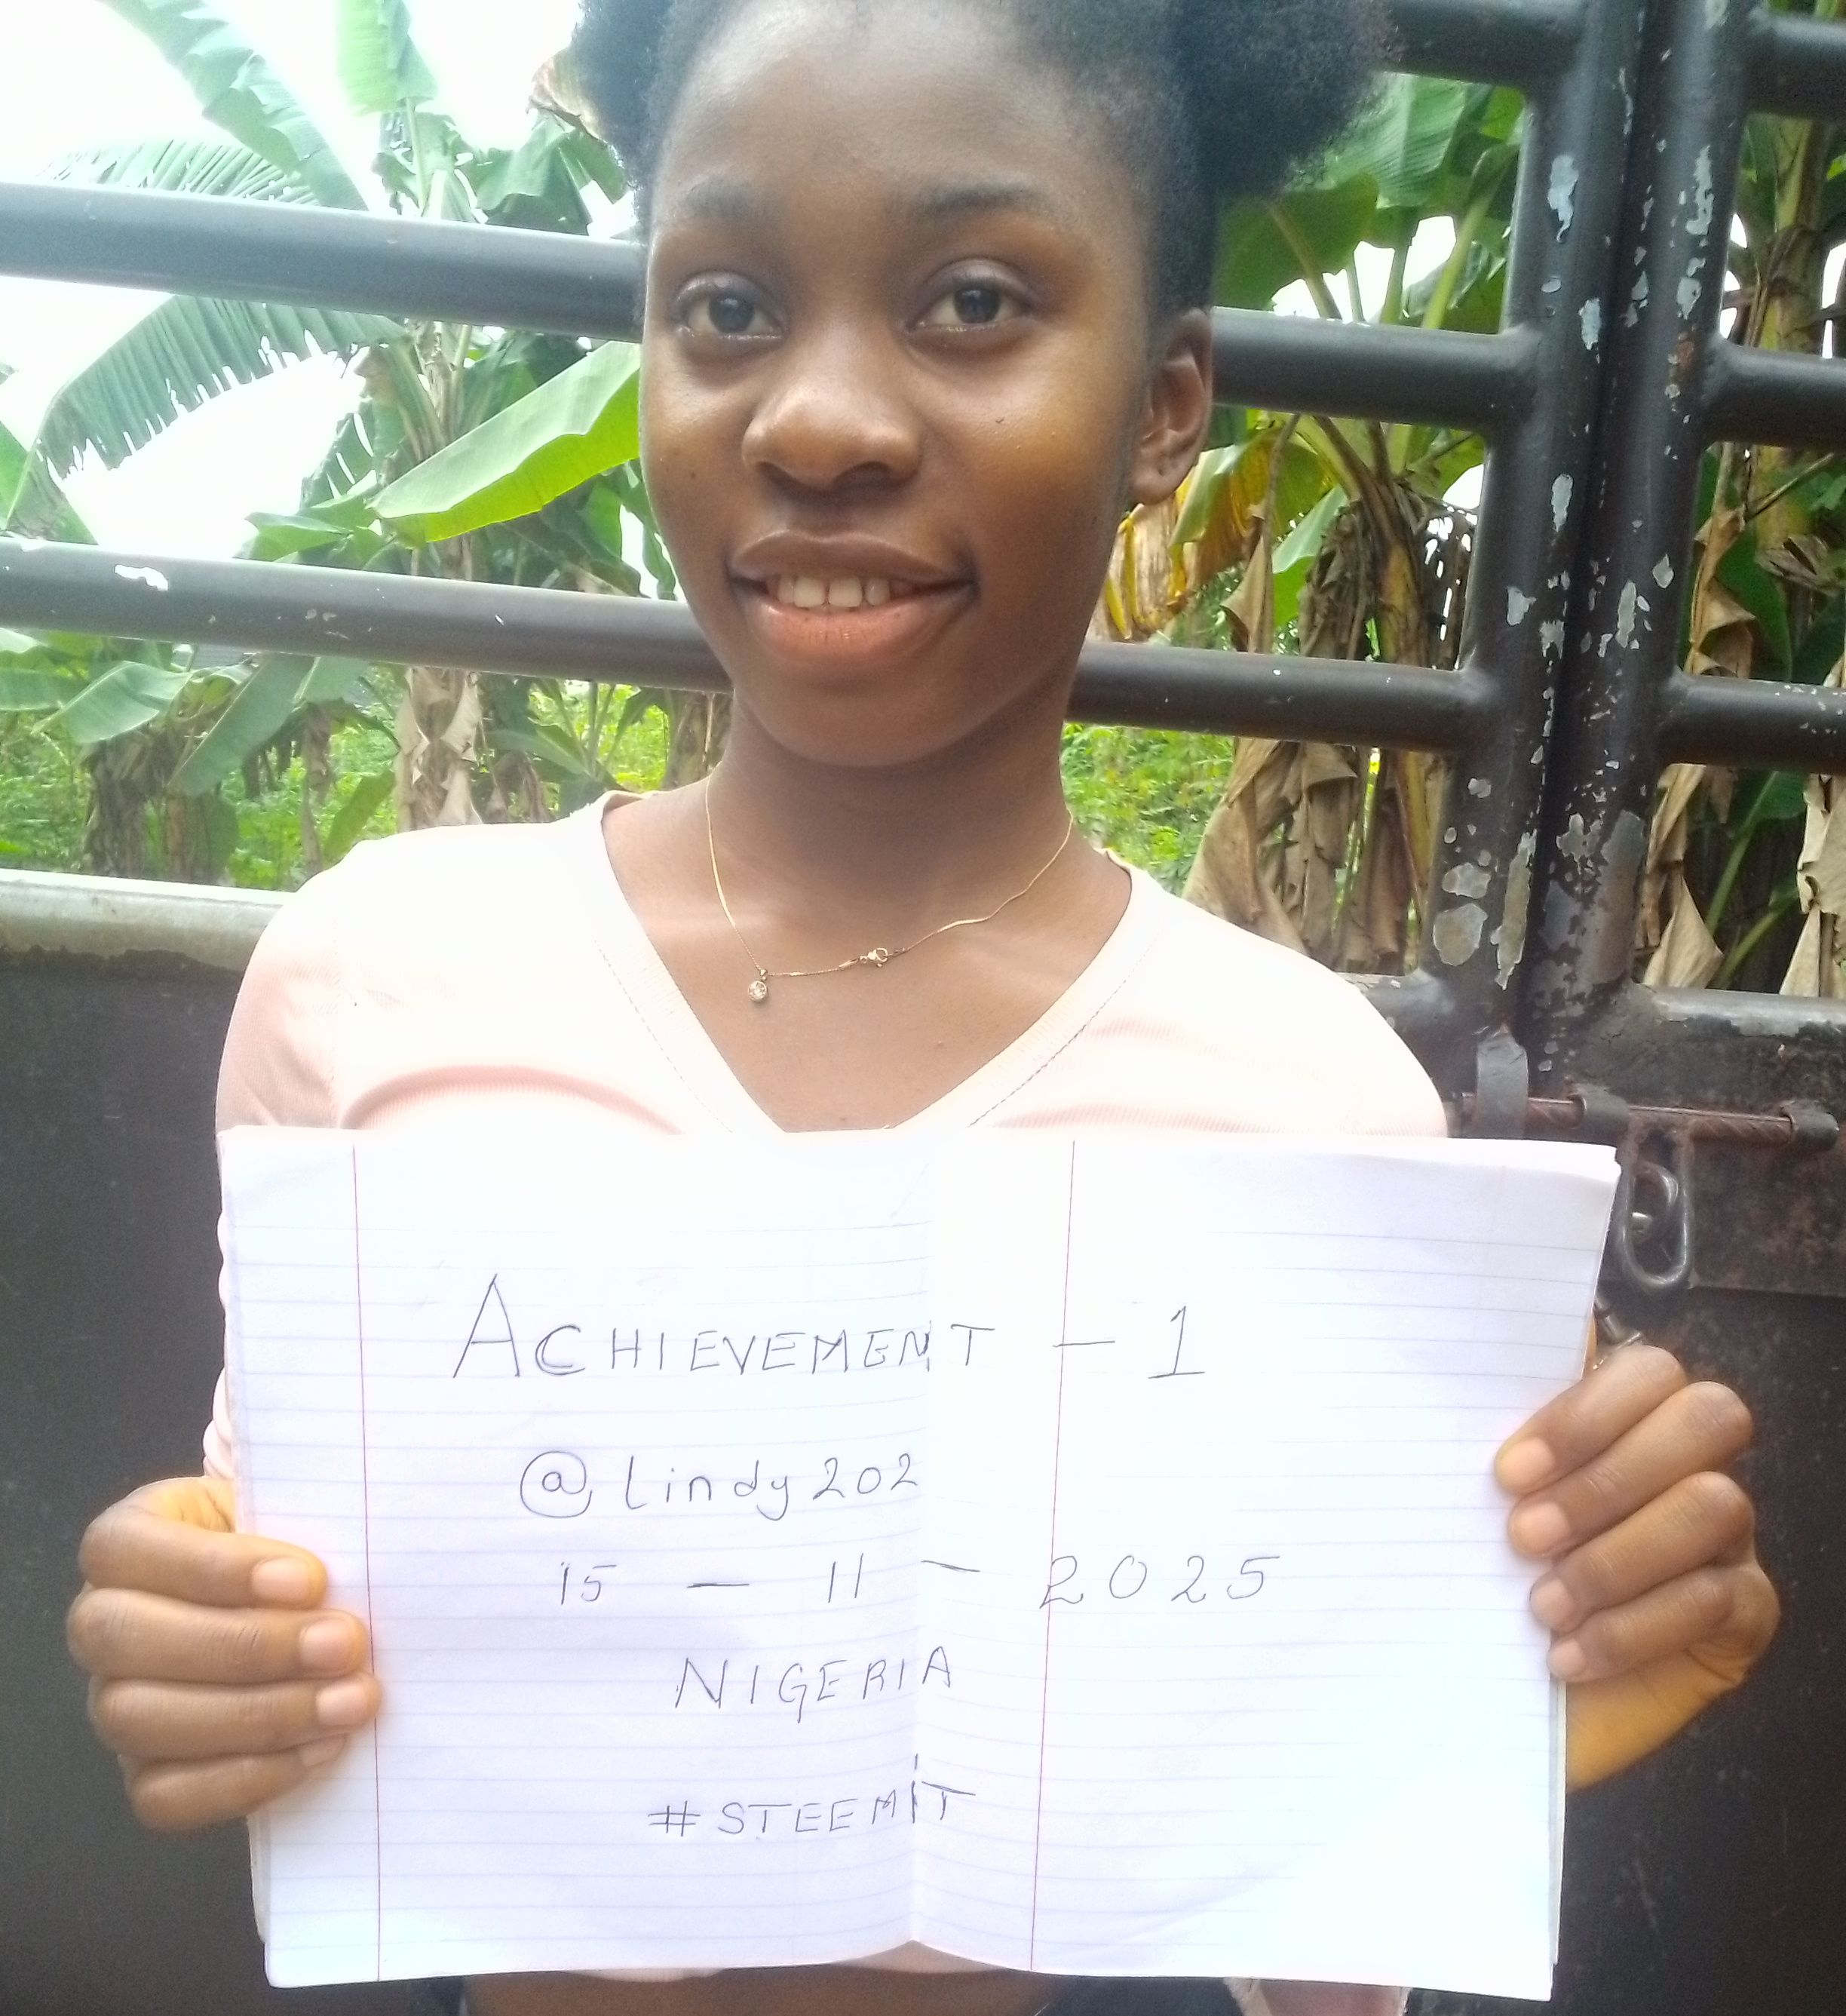 ACHIEVEMENT - 1
@lindy202
15 - 11 - 2025
NIGERIA
#STEEMIT